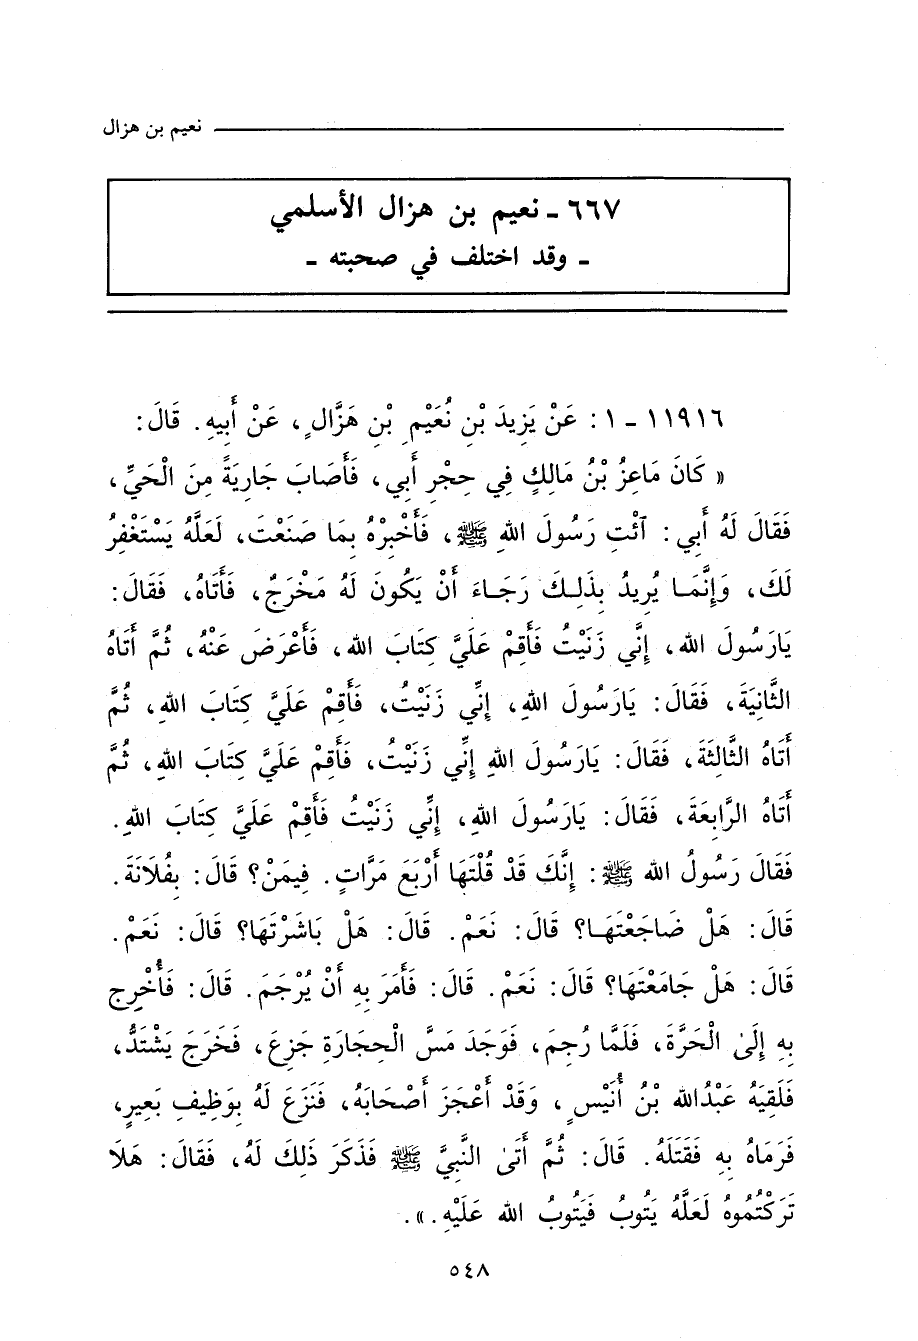 نعيم بن هزال
٦٦٧ - نعيم بن هزال الأسلمي
- وقد اختلف في صحبته -
١١٩١٦ - ١ : عَنْ يَزِيدَ بْنِ نُعَيْمِ بْنِ هَزَّالٍ، عَنْ أَبِيهِ. قَالَ:
« كَانَ مَاعِزُ بْنُ مَالِكٍ فِي حِجْرِ أَبِي، فَأَصَابَ جَارِيَةً مِنَ الْحَيِّ،
فَقَالَ لَهُ أَبِي: ٱئْتِ رَسُولَ اللهِ ﷺ، فَأَخْبِرْهُ بِمَا صَنَعْتَ، لَعَلَّهُ يَسْتَغْفِرُ
لَكَ، وَإِنَّمَا يُرِيدُ بِذَلِكَ رَجَاءَ أَنْ يَكُونَ لَهُ مَخْرَجٌ، فَأَتَاهُ، فَقَالَ:
يَارَسُولَ اللهِ، إِنَّي زَنَيْتُ فَأَقِمْ عَلَيَّ كِتَابَ اللهِ، فَأَعْرَضَ عَنْهُ، ثُمَّ أَتَاهُ
الثَّانِيَةَ، فَقَالَ: يَارَسُولَ اللهِ، إِنِّي زَنَيْتُ، فَأَقِمْ عَلَيَّ كِتَابَ اللهِ، ثُمَّ
أَتَاهُ الثَّالِثَةَ، فَقَالَ: يَارَسُولَ اللهِ إِنِّي زَنَيْتُ، فَأَقِمْ عَلَيَّ كِتَابَ اللهِ، ثُمَّ
أَتَاهُ الرَّابِعَةَ، فَقَالَ: يَارَسُولَ اللهِ، إِنِّي زَنَيْتُ فَأَقِمْ عَلَيَّ كِتَابَ اللهِ.
فَقَالَ رَسُولُ اللهِ ﷺ: إِنَّكَ قَدْ قُلْتَهَا أَرْبَعَ مَرَّاتٍ. فِيمَنْ؟ قَالَ: بِفُلَانَةَ.
قَالَ: هَلْ ضَاجَعْتَهَا؟ قَالَ: نَعَمْ. قَالَ: هَلْ بَاشَرْتَهَا؟ قَالَ: نَعَمْ.
قَالَ: هَلْ جَامَعْتَهَا؟ قَالَ: نَعَمْ. قَالَ: فَأَمَرَ بِهِ أَنْ يُرْجَمَ. قَالَ: فَأُخْرِجَ
بِهِ إِلَىٰ الْحَرَّةِ، فَلَمَّا رُجِمَ، فَوَجَدَ مَسَّ الْحِجَارَةِ جَزِعَ، فَخَرَجَ يَشْتَدُّ،
فَلَقِيَهُ عَبْدُاللهِ بْنُ أُنَيْسٍ، وَقَدْ أَعْجَزَ أَصْحَابَهُ، فَنَزَعَ لَهُ بِوَظِيفِ بَعِيرٍ،
فَرَمَاهُ بِهِ فَقَتَلَهُ. قَالَ: ثُمَّ أَتَىٰ النَّبِيَّ ﷺ فَذَكَرَ ذَلِكَ لَهُ، فَقَالَ: هَلَا
تَرَكْتُمُوهُ لَعَلَّهُ يَتُوبُ فَيَتُوبُ اللهُ عَلَيْهِ. ».
٥٤٨